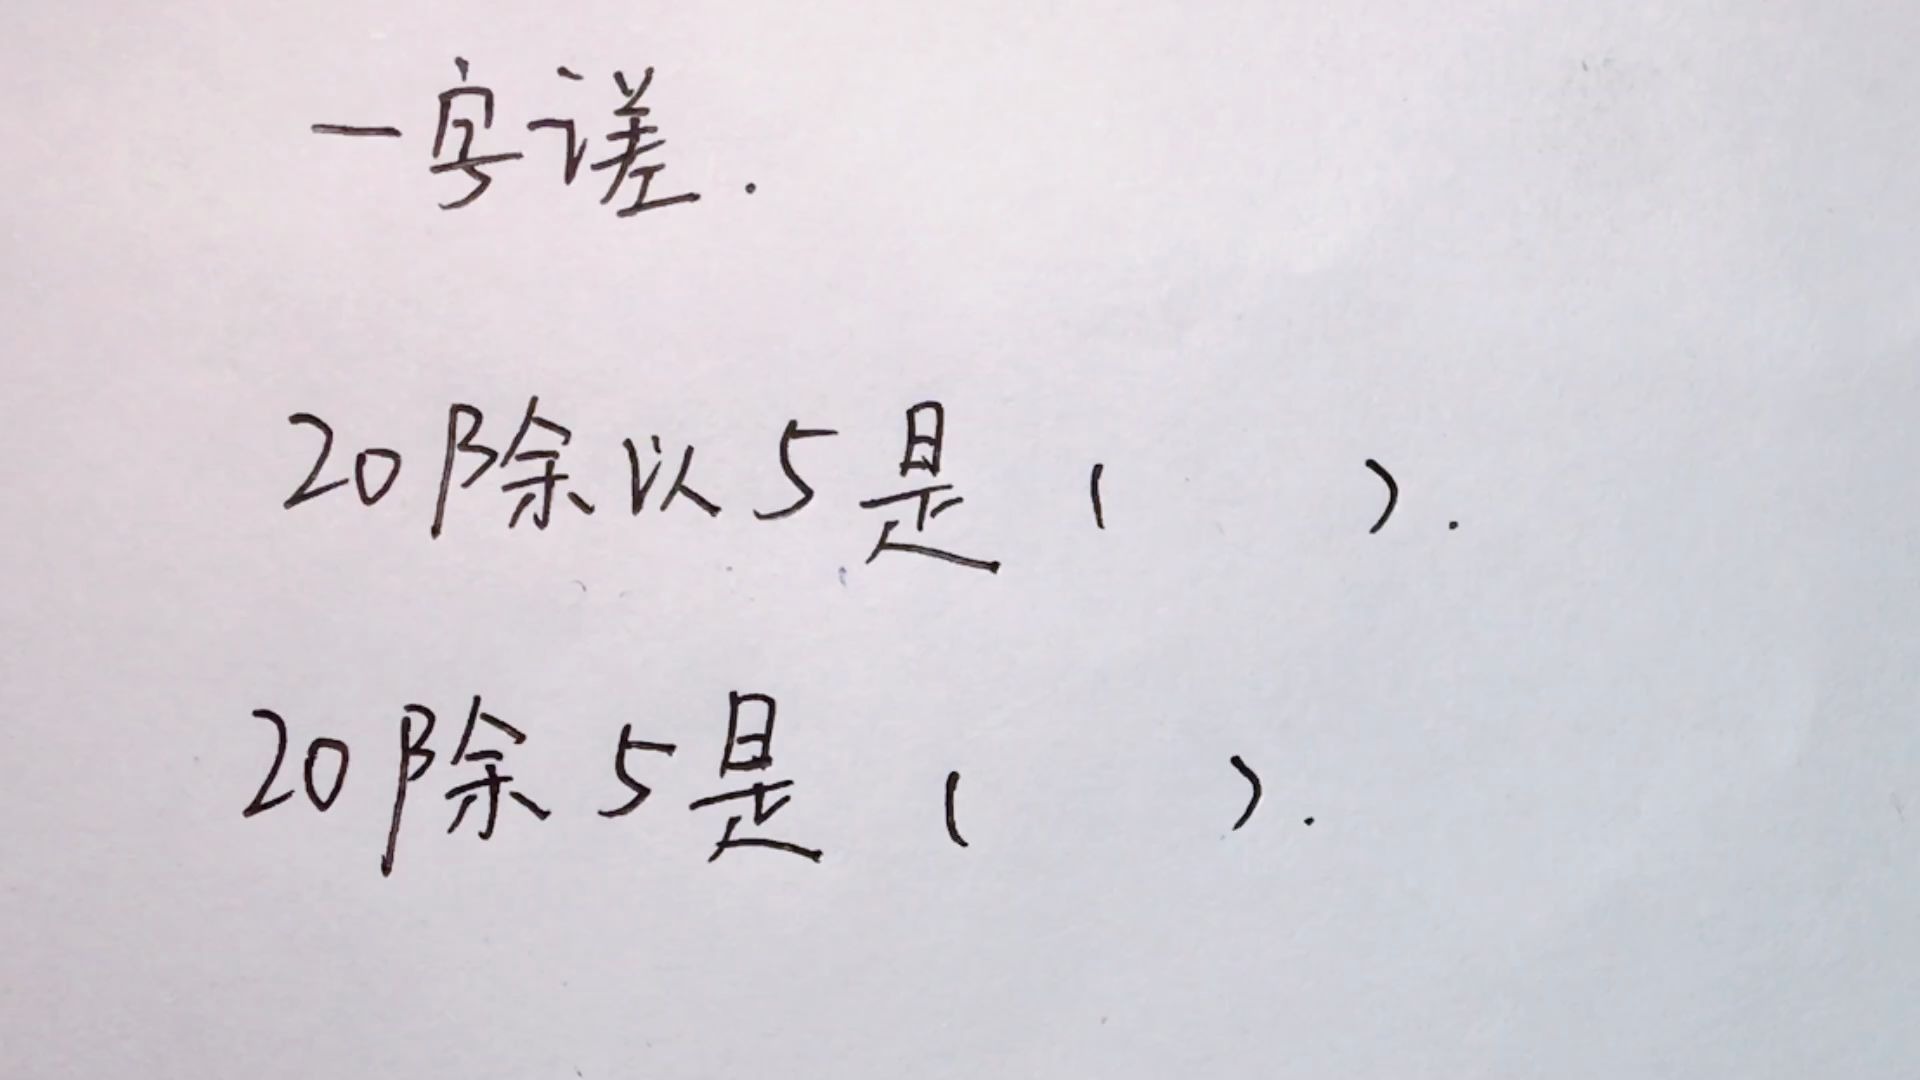 一字之差.
20除以5是( ).
20除5是( ).